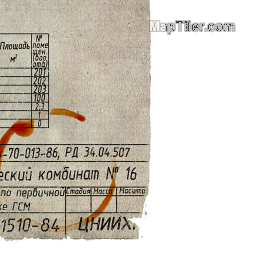 MapTiler.com
Площадь
м²
№
поме
щен.
201
202
203
100
2,3
1
0
-70-013-86, РД 34.04.507
еский комбинат № 16
по первичной Стадия Масса Масшта
ке ГСМ
1510-84 ЦНИИХ.